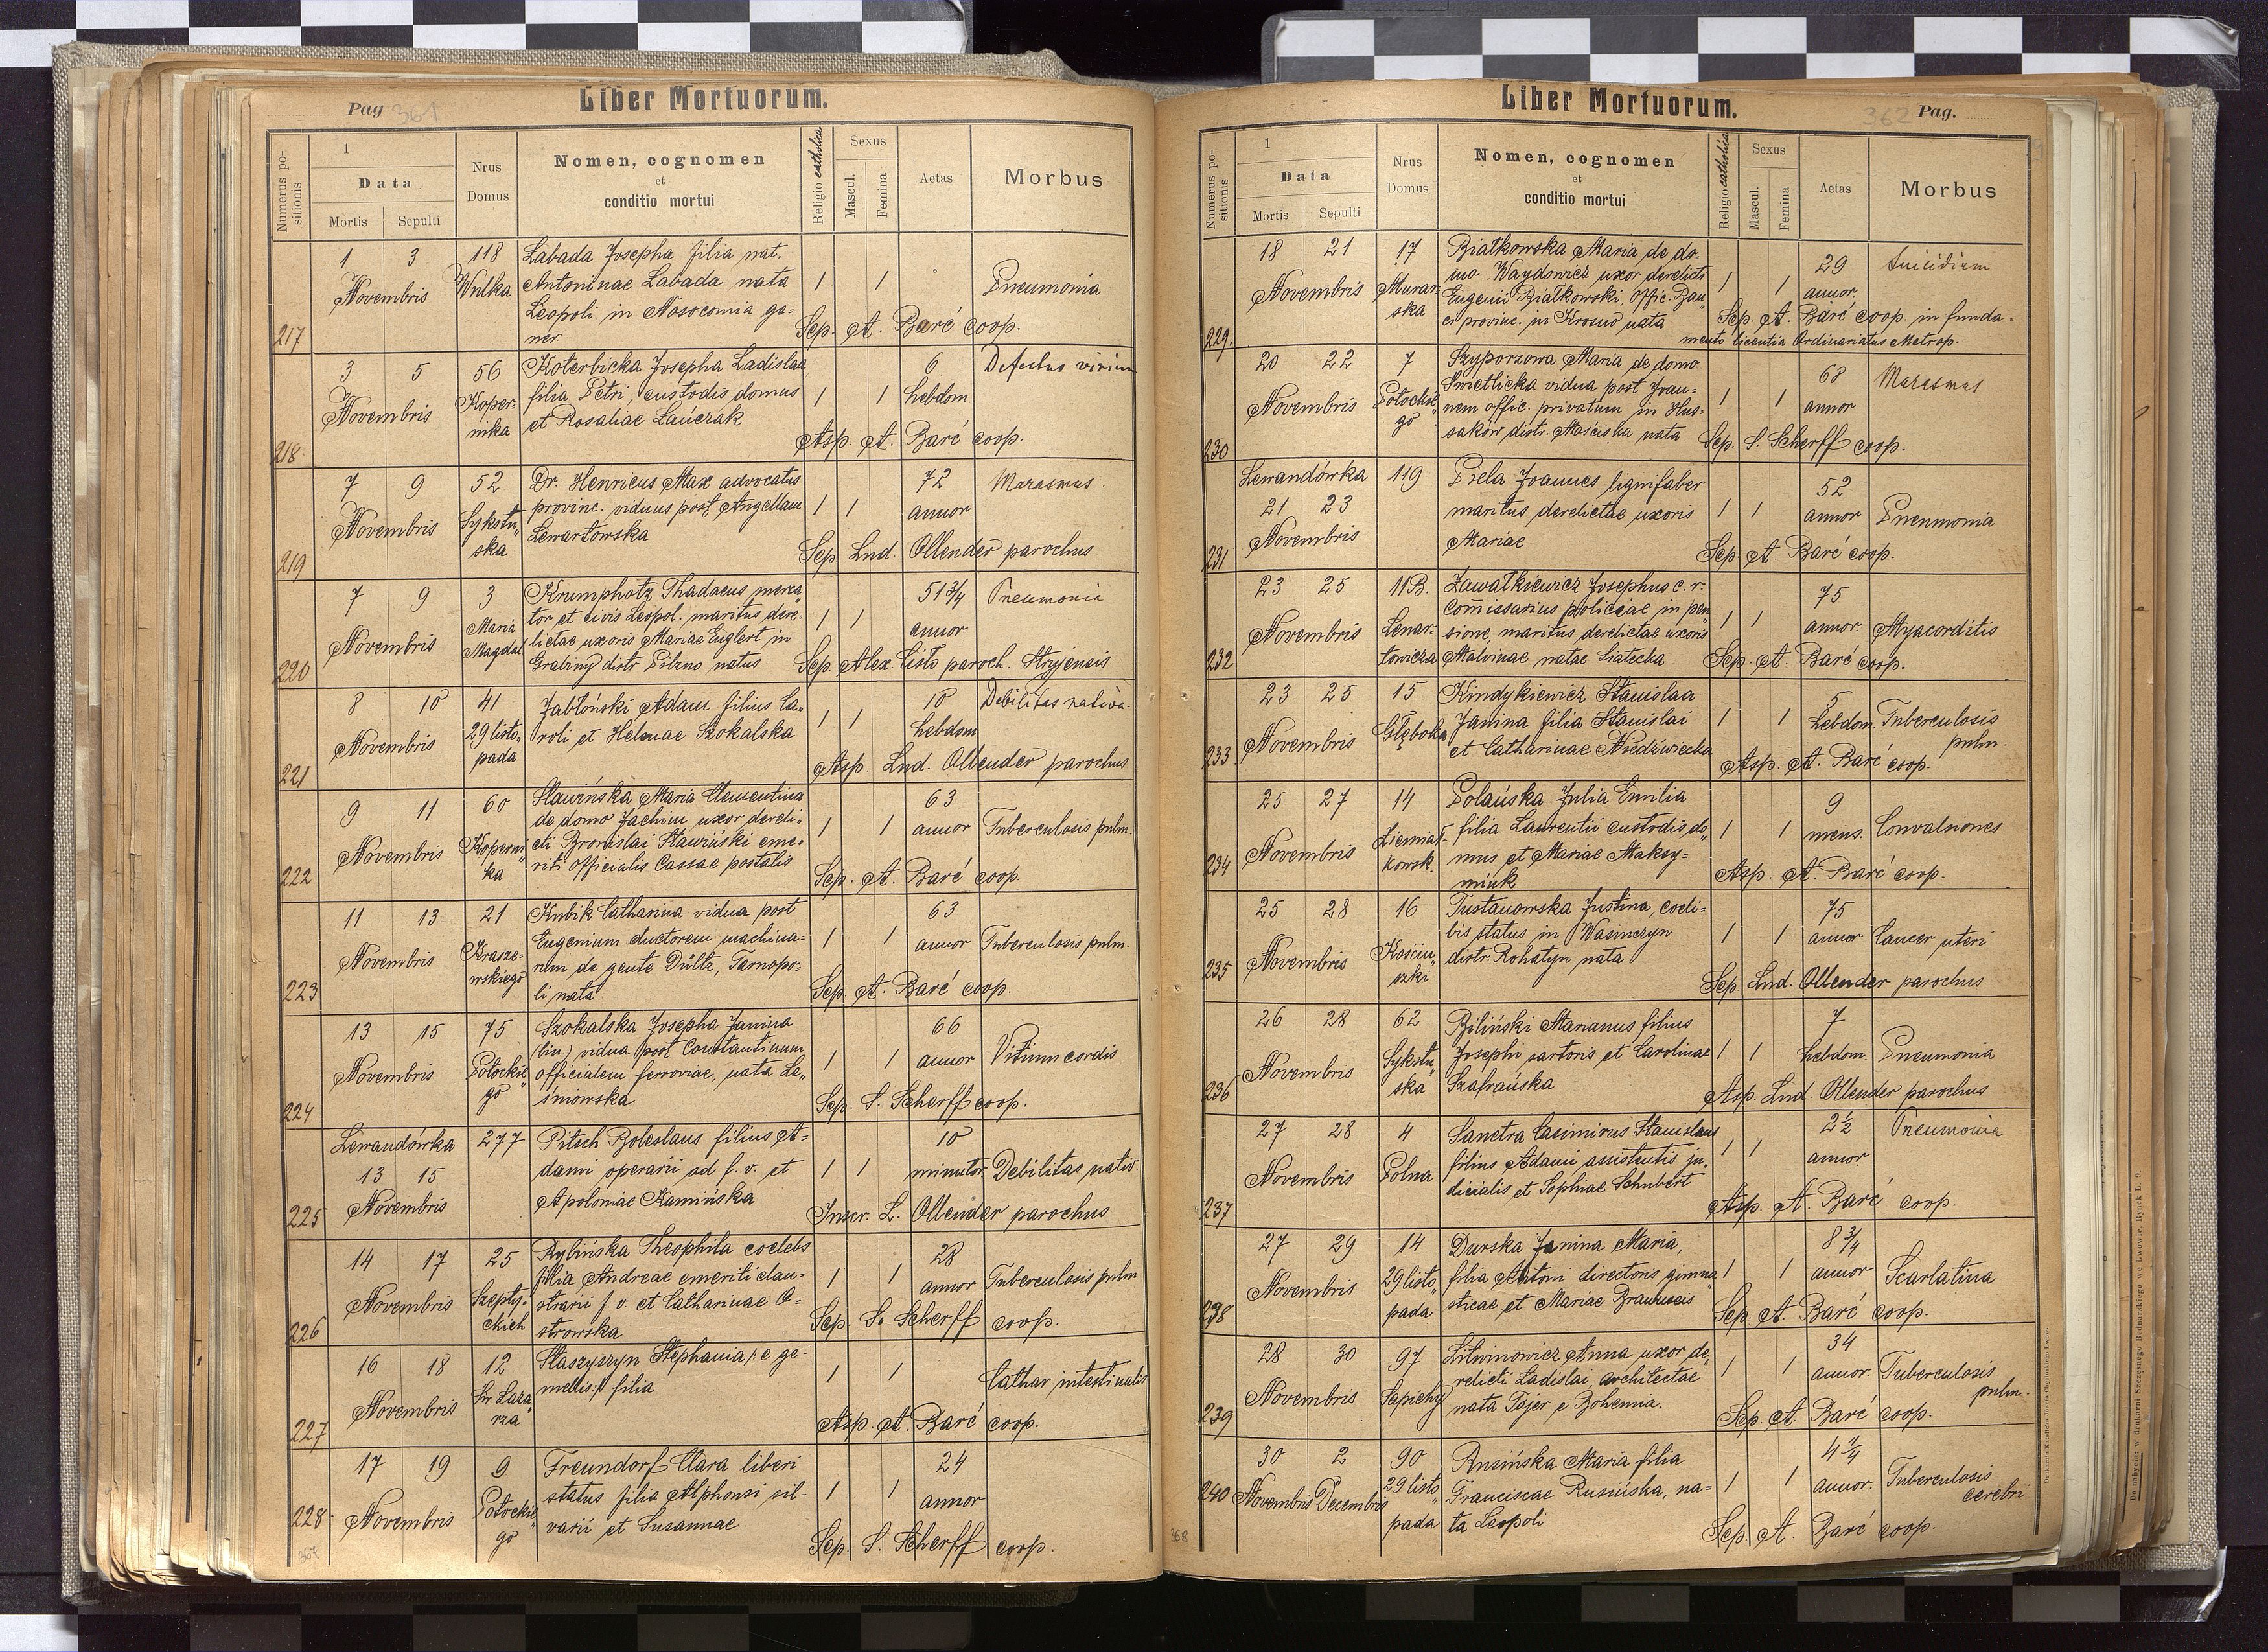 Pag 361
Liber Mortuorum.
Numerus positionis
1
Data
Mortis Sepulti
Nrus Domus
Nomen, cognomen
et
conditio mortui
Religio catholica
Sexus
Mascul. Femina
Aetas
Morbus
217
1 3 Novembris
118 Wulka
Labada Josepha filia nat.
Antoninae Labada nata
Leopoli in Nosocomia ge=
ner.
1 1 Pneumonia
Sep. A. Barć coop.
218
3 5 Novembris
56 Koper-
nika
Koterbicka Josepha Ladislaa
filia Petri, custodis domus
et Rosaliae Łańczak
1 1 6 hebdom. Defectus virium
Asp. A. Barć coop.
219
7 9 Novembris
52 Sykstu„
ska
Dr. Henricus Max advocatus
provinc. viduus post Angellam
Lewartowska
1 1 72 annor Marasmus.
Sep. Lud Ollender parochus
220
7 9 Novembris
3 Maria
Magdal
Krumpholz Thadaeus merca„
tor et civis Leopol. maritus dere-
lictae uxoris Mariae Englert in
Grabiny distr Pilzno natus
1 1 51 3/4 annor Pneumonia
Sep. Alex Cisło paroch. Stryjensis
221
8 10 Novembris
41 29 listo„
pada
Jabłoński Adam filius Ca„
roli et Helenae Szokalska
1 1 10 hebdom Debilitas nativa.
Asp Lud. Ollender parochus
222
9 11 Novembris
60 Koperni„
ka
Sławińska Maria Clementina
de domo Jachim uxor dereli-
cti Bronislai Sławiński eme-
riti officialis Cassae postalis
1 1 63 annor Tuberculosis pulm.
Sep. A. Barć coop.
223
11 13 Novembris
21 Krasze-
wskiego
Kubik Catharina vidua post
Eugenium ductorem machina=
rum de gente Dültz, Tarnopo-
li nata
1 1 63 annor Tuberculosis pulm.
Sep. A. Barć coop.
224
13 15 Novembris
75 Potockie„
go
Szokalska Josepha Janina
(bin) vidua post Constantinum
officialem ferroviae, nata Le„
śniowska
1 1 66 annor Vitium cordis
Sep. S. Scherff coop.
225
Lewandówka 277
13 15 Novembris
Pitsch Boleslaus filius A=
dami operarii ad f. v. et
Apoloniae Kamińska
1 1 10 minutor. Debilitas nativ.
Inscr. L. Ollender parochus
226
14 17 Novembris
25 Szepty-
ckich
Rybińska Theophila coelebs
filia Andreae emeriti clau-
strarii f. v. et Catharinae O-
strowska
1 1 28 annor Tuberculosis pulm
Sep. S. Scherff coop.
227
16 18 Novembris
12 Św. Łaza„
rza
Staszyszyn Stephania /: e ge-
mellis :/ filia
1 1 Cathar intestinalis
Asp. A. Barć coop.
228
17 19 Novembris
9 Potockie„
go
Freundorf Clara liberi
status filia Alphonsi sil-
varii et Susannae
1 1 24 annor
Sep. S. Scherff coop.
367
Liber Mortuorum.
362 Pag.
Numerus positionis
1
Data
Mortis Sepulti
Nrus Domus
Nomen, cognomen
et
conditio mortui
Religio catholica
Sexus
Mascul. Femina
Aetas
Morbus
229.
18 21 Novembris
17 Murar-
ska
Białkowska Maria de do-
mo Waydowicz uxor derelicti
Eugenii Białkowski, offic. Ban„
ci provinc. in Krosno nata
1 1 29 annor. Suicidium
Sep. A. Barć coop. in funda-
mento licentia Ordinariatus Metrop.
230
20 22 Novembris
7 Potockie„
go
Szyporzowa Maria de domo
Świetlicka vidua post Joan-
nem offic. privatum in Hus=
saków distr. Mościska nata
1 1 68 annor Marasmus
Sep. S. Scherff coop.
231
Lewandówka 119
21 23 Novembris
Piela Joannes lignifaber
maritus derelictae uxoris
Mariae
1 1 52 annor Pneumonia
Sep. A. Barć coop.
232
23 25 Novembris
11B. Lenar-
towicza
Zawałkiewicz Josephus c. r.
Comissarius policiae in pen„
sione, maritus derelictae uxoris
Malvinae natae Siatecka
1 1 75 annor. Myacorditis
Sep. A. Barć coop.
233
23 25 Novembris
15 Głęboka
Kindykiewicz Stanislaa
Janina filia Stanislai
et Catharinae Niedźwiecka
1 1 5 hebdom. Tuberculosis
pulm.
Asp. A. Barć coop.
234
25 27 Novembris
14 Ziemiał-
kowsk.
Polańska Julia Emilia
filia Laurentii custodis do„
mus et Mariae Maksy-
miuk
1 1 9 mens. Convulsiones
Asp. A. Barć coop.
235
25 28 Novembris
16 Kościu„
szki
Tustanowska Justina, coeli=
bis status in Wasiuczyn
distr. Rohatyn nata
1 1 75 annor Cancer uteri
Sep. Lud. Ollender parochus
236
26 28 Novembris
62 Sykstu„
ska
Biliński Marianus filius
Josephi sartoris et Carolinae
Szafrańska
1 1 7 hebdom. Pneumonia
Asp. Lud. Ollender parochus
237
27 28 Novembris
4 Polna
Sanetra Casimirus Stanislaus
filius Adami assistentis ju-
dicialis et Sophiae Schubert
1 1 2 1/2 annor. Pneumonia
Asp. A. Barć coop.
238
27 29 Novembris
14 29 listo„
pada
Durska Janina Maria,
filia Antoni directoris gimna„
sticae et Mariae
1 1 8 3/4 annor Scarlatina
Sep. A. Barć coop.
239
28 30 Novembris
97 Sapiehy
Litwinowicz Anna uxor de„
relicti Ladislai, architectae
nata Fajer e Bohemia.
1 1 34 annor. Tuberculosis
pulm.
Sep A Barć coop.
240
30 2 Novembris Decembris
90 29 listo„
pada
Rusińska Maria filia
Franciscae Rusińska, na=
ta Leopoli
1 1 4 1/4 annor. Tuberculosis
cerebri
Sep. A. Barć coop.
368
Do nabycia w drukarni Szczęsnego Bednarskiego we Lwowie, Rynek L. 9.